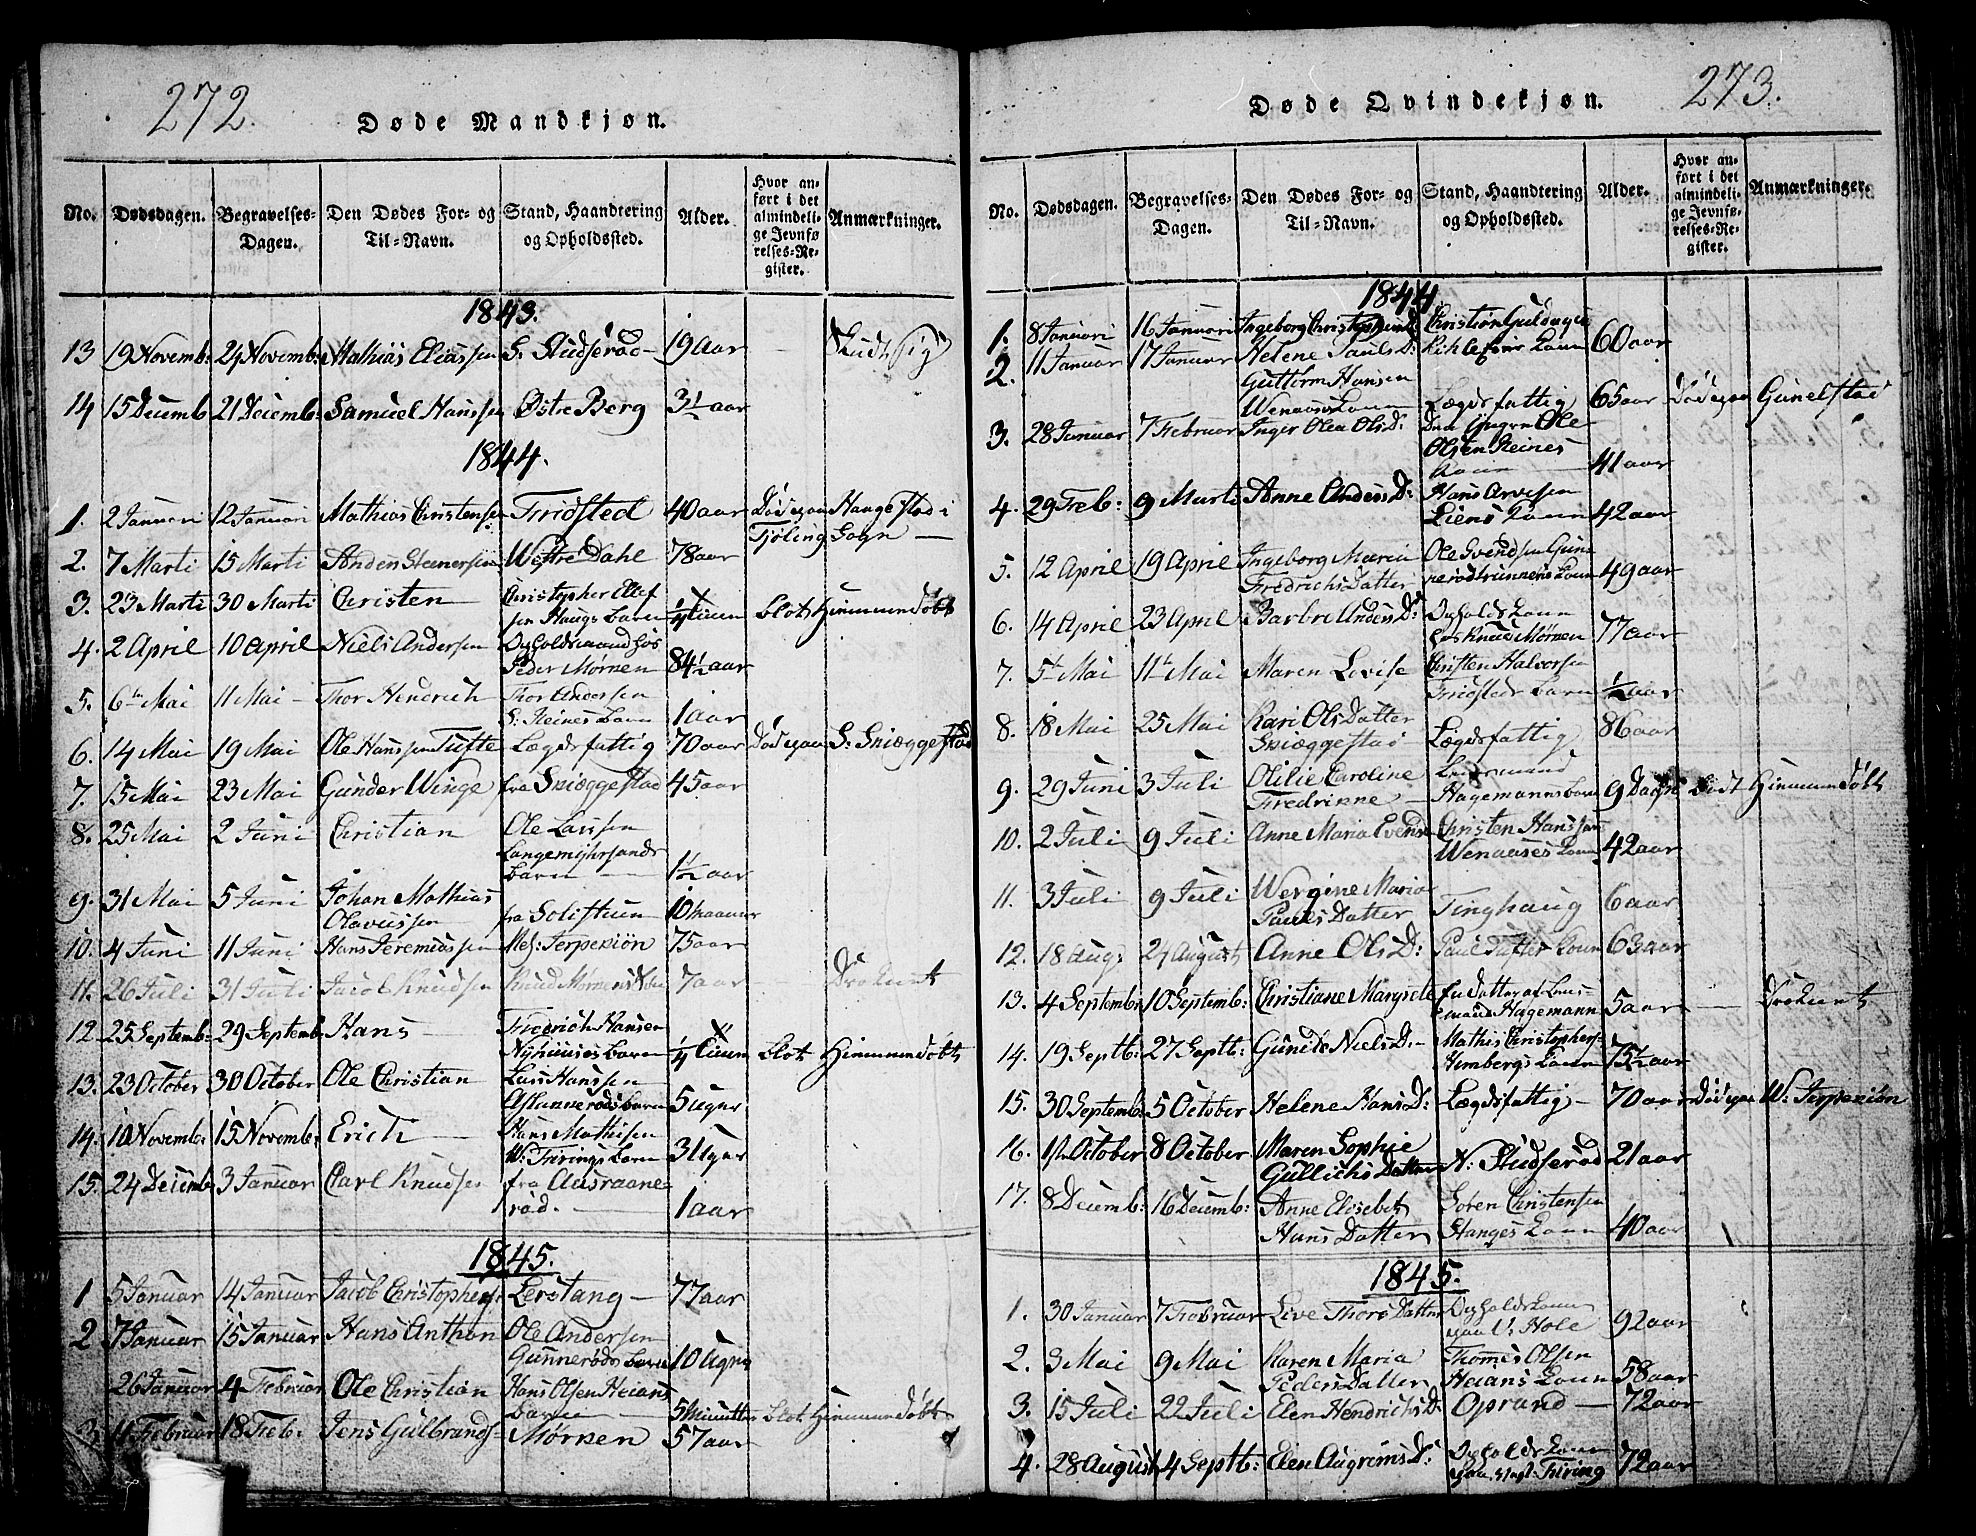 272.
Døde Mandkjøn.
No. Dødsdagen. Begravelses-Dagen. Den Dødes For- og Til-Navn. Stand, Haandtering og Opholdssted. Alder. Hvor anført i det almindelige Jevnførelses-Register. Anmærkninger.
1843.
13 19 Novemb: 24 Novemb: Mathias Eliassen S: Studserød 19 aar
14 15 Decemb 21 Decemb: Samuel Hanssen Østre Berg 31 aar
1844.
1. 2 Januari 12 Januari Mathias Christensen Tridsted 40 aar Død paa Haugestad i
Tjøling Sogn
2. 7 Marti 15 Marti Anders Steenersen Westre Dahl 78 aar
3. 23 Marti 30 Marti Christen Christopher Ellef
sen Haugs Barn 1/4 Time blot Hiemmedøbt
4. 2 April 10 April Niels Andersen Opholdsmand hos
Peder Mørnen 84½ aar
5. 6te Mai 11 Mai Thor Hendrich Thor Andersen
S: Reines Barn 1 aar
6. 14 Mai 19 Mai Ole Hanssen Tufte Lægdsfattig 70 aar Død paa S: Sniæggestad
7. 15 Mai 23 Mai Gunder Winge fra Sniæggestad 45 aar
8. 25 Mai 2 Juni Christian Ole Larssen
Langemyhrsands
Barn 1½ aar
9. 31 Mai 5 Juni Johan Mathias
Olavussen fra Solistuen 10 maaner
10. 4 Juni 11 Juni Hans Jeremiassen 75 aar
11. 26 Juli 31 Juli Jacob Knudsen Knud Mørnens Søn 7 aar Druknet
12. 25 Septemb: 29 Septemb Hans Fredrich Hansen
Barn 1/4 Time blot Hiemmedøbt
13. 23 October 30 October Ole Christian Lars Hanssen
Askannerøds Barn 5 uger
14. 10 Novemb: 15 Novemb: Erich Hans Mathisen
W: Firings Barn 3 Uger
15. 24 Decemb 3 Januar Carl Knudsen fra Ausraane-
rød. 1 aar
1845.
1 5 Januar 14 Januar Jacob Christophersen Lerstang 77 aar
2 7 Januar 15 Januar Hans Anthon Ole Andersen
Gunnerøds Barn 10 Uger
26 Januar 4 Februar Ole Christian Hans Olsen Heians
Barn 5 Minutter blot Hiemmedøbt
3 11 Februar 18 Feb: Jens Gulbrands- Mørnen 57 aar
273.
Døde Qvindekjøn.
No. Dødsdagen. Begravelses-Dagen. Den Dødes For- og Til-Navn. Stand, Haandtering og Opholdssted. Alder. Hvor anført i det almindelige Jevnførelses-Register. Anmærkninger.
1844
1. 8 Januari 16 Januari Ingeborg Christophers D: Christian Guldager
Kone 60 aar
2. 11 Januar 17 Januar Helene Pauls D:
Guttorm Hansen
Wenaases Kone Lægdsfattig 65 aar Død paa Gunelstad
3. 28 Januar 7 Februar Inger Olea Ols D: Ole
Olsen Reines
Kone 41 aar
4. 29 Feb: 9 Marti Anne Anders D: Hans Arvesen
Liens Kone 42 aar
5. 12 April 19 April Ingeborg Maria
Fredrichs Datter Ole Svendsen Gun-
nerødtrannens Kone 49 aar
6. 14 April 23 April Barbro Anders D: Opholds Kone
hos Knud Mørnen 77 aar
7. 5te Mai 11te Mai Maren Lovise Christen Halvorsen
Tridsteds Barn ½ aar
8. 18 Mai 25 Mai Kari Ols Datter
Sniæggestad Lægdsfattig 86 aar
9. 29 Juni 3 Juli Otilie Caroline
Fredrikke Lensmand
Hagemanns Barn 9 Dage blot Hiemmedøbt
10. 2 Juli 9 Juli Anne Maria Evens Christen Hanssen
Wenaases Kone 42 aar
11. 3 Juli 9 Juli Wergine Maria
Pauls Datter Tinghaug 6 aar
12. 18 Aug: 24 August Anne Ols D: Paul Tufte Kone 63 aar
13. 4 Septemb: 10 Septemb: Christiane Margrete en Datter af Lens-
mand Hagemann 5 aar Druknet
14. 19 Septb: 27 Septb: Gunilde Niels D: Mathis Christophers-
Himbergs Kone 75½ aar
15. 30 Septemb: 5 October Helene Hans D: Lægdsfattig 70 aar Død paa W: Jerpekiøn
16. 1ste October 8 October Maren Sophie
Gullichs Datter N: Studserød 21 aar
17. 8 Decemb: 16 Decemb: Anne Elisebet
Hans Datter Søren Christensen
Hanges Kone 40 aar
1845.
1. 30 Januar 7 Februar Live Thors Datter Opholds Kone
paa V: Hole 92 aar
2. 3 Mai 9 Mai Karen Maria
Peders Datter Thomas Olsen
Heians Kone 58 aar
3. 15 Juli 22 Juli Elen Hendrichs D: Oprand 72 aar
4. 28 August 4 Septb: Elen Augrims D: Opholds Kone
paa Vest: Firing 72 aar